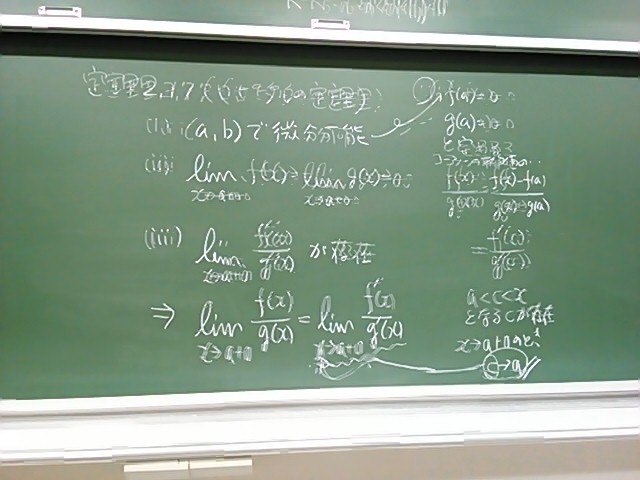 定理 2.3.7
(i) (a, b) で微分可能
(ii) lim x→a+0 f(x) = lim x→a+0 g(x) = 0
(iii) lim x→a+0 f'(x)/g'(x) が存在
⇒ lim x→a+0 f(x)/g(x) = lim x→a+0 f'(x)/g'(x)
f(a)=0
g(a)=0
f(x)/g(x) = f(x)-f(a)/g(x)-g(a)
= f'(c)/g'(c)
a<c<x
となるcが存在
x→a+0のとき
c→a